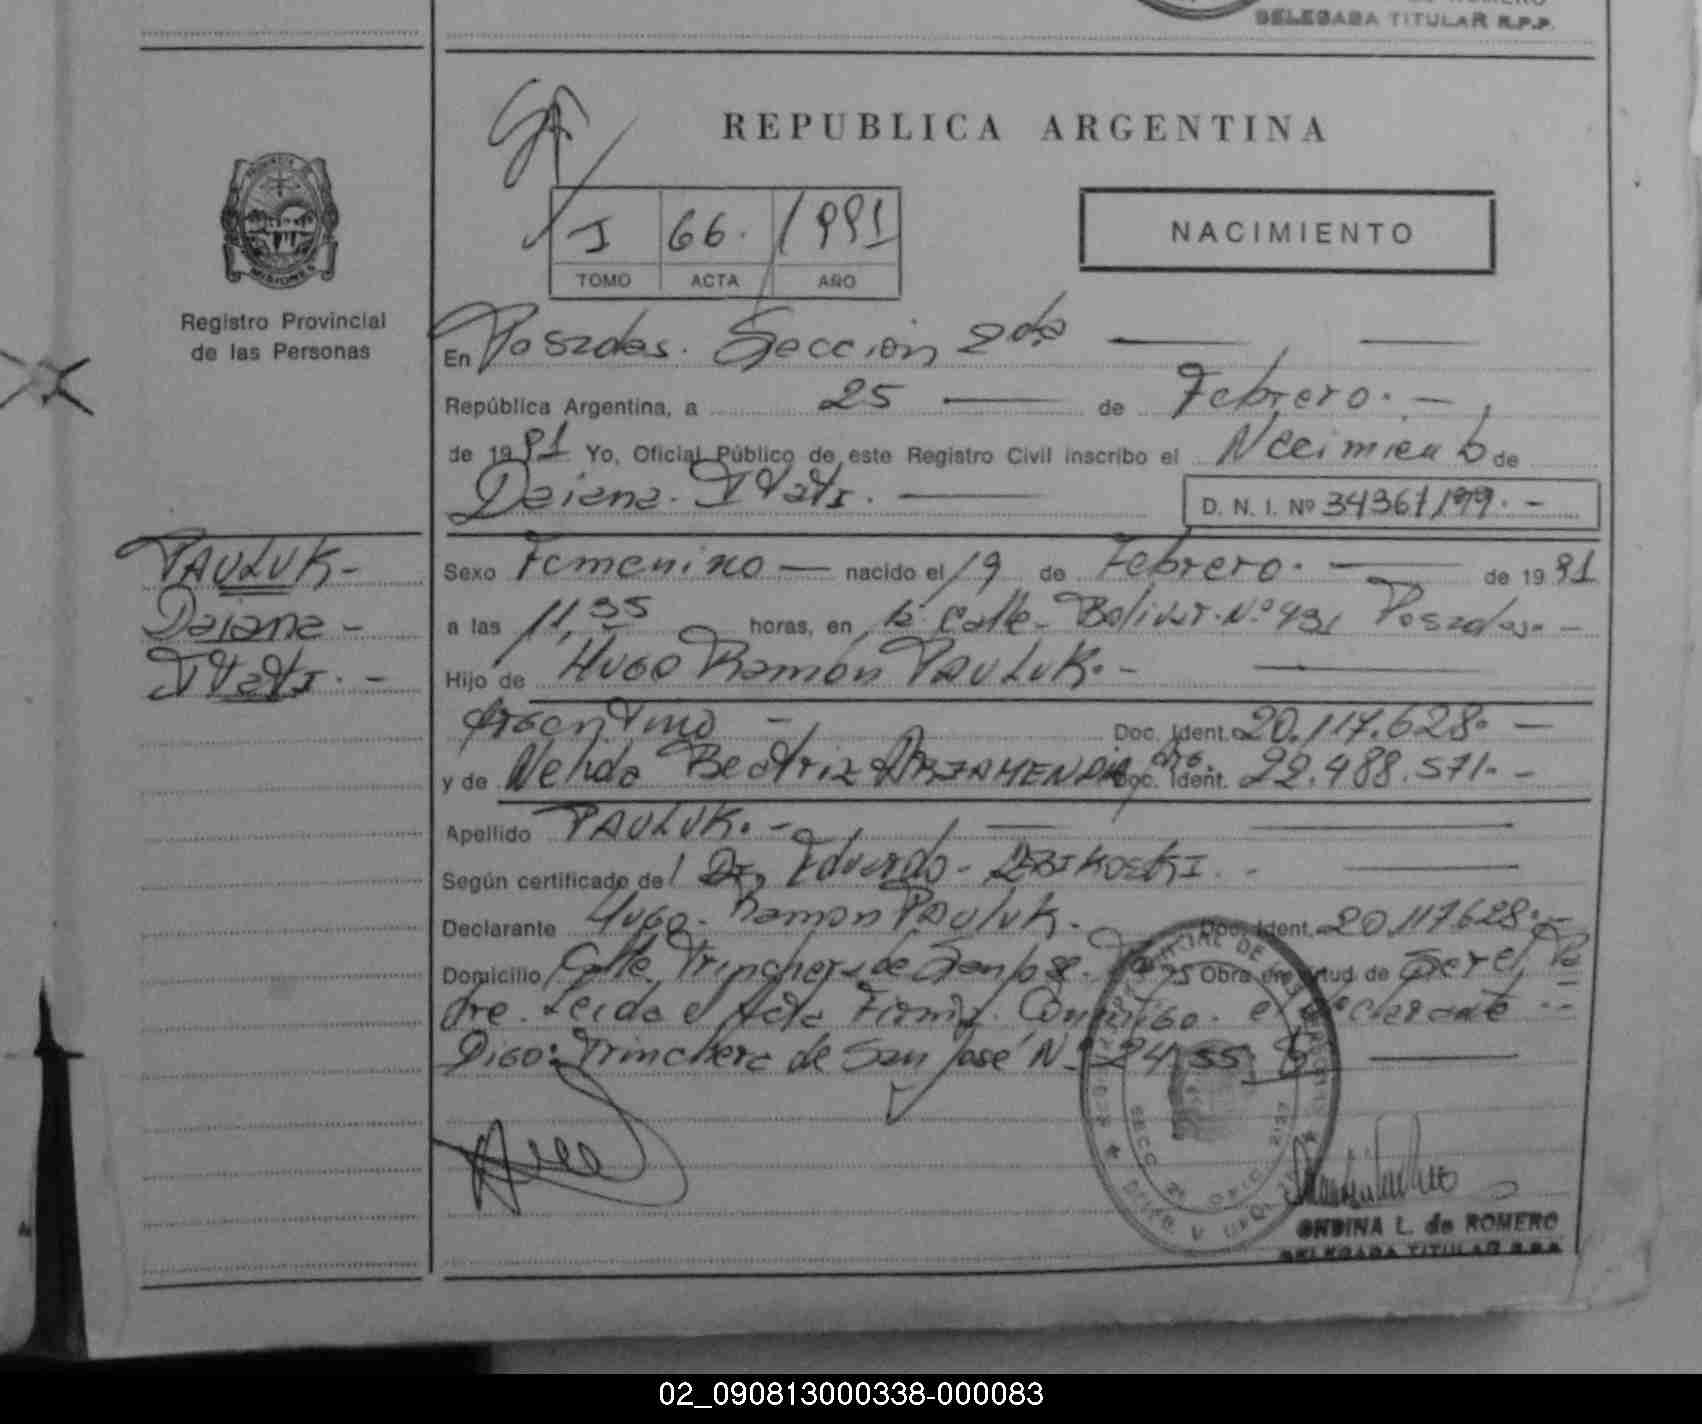 DELEGADA TITULAR R.P.P.
REPUBLICA ARGENTINA
I 66. 1991
TOMO ACTA AÑO
NACIMIENTO
MISIONES
Registro Provincial
de las Personas
En Posadas. Sección 2da
República Argentina, a 25 de Febrero. -
de 1991 Yo, Oficial Público de este Registro Civil inscribo el Nacimiento de
Daiana. Itati. D. N. I. Nº 34361199. -
PAULUK -
Daiana -
Itati. -
Sexo Femenino - nacido el 19 de Febrero. de 1991
a las 11,35 horas, en la Calle Bolivar. Nº 431 Posadas. -
Hijo de Hugo Ramón PAULUK. -
Argentino - Doc. Ident. 20.117.628. -
y de Nelida Beatriz ARZAMENDIA Arg. Doc. Ident. 22.488.571. -
Apellido PAULUK. -
Según certificado del Dr. Eduardo
Declarante Hugo. Ramon PAULUK. - Doc. Ident. 20.117.628. -
Domicilio Calle Trinchera de San Jose. Obra en virtud de Ser el Pa
dre. Leida el Acta Firma. Conmigo. el declarante - -
Digo: Trinchera de San José Nº 2455
SECC. 2ª OFIC. 2137
ONDINA L. de ROMERO
DELEGADA TITULAR R.P.P.
02_090813000338-000083